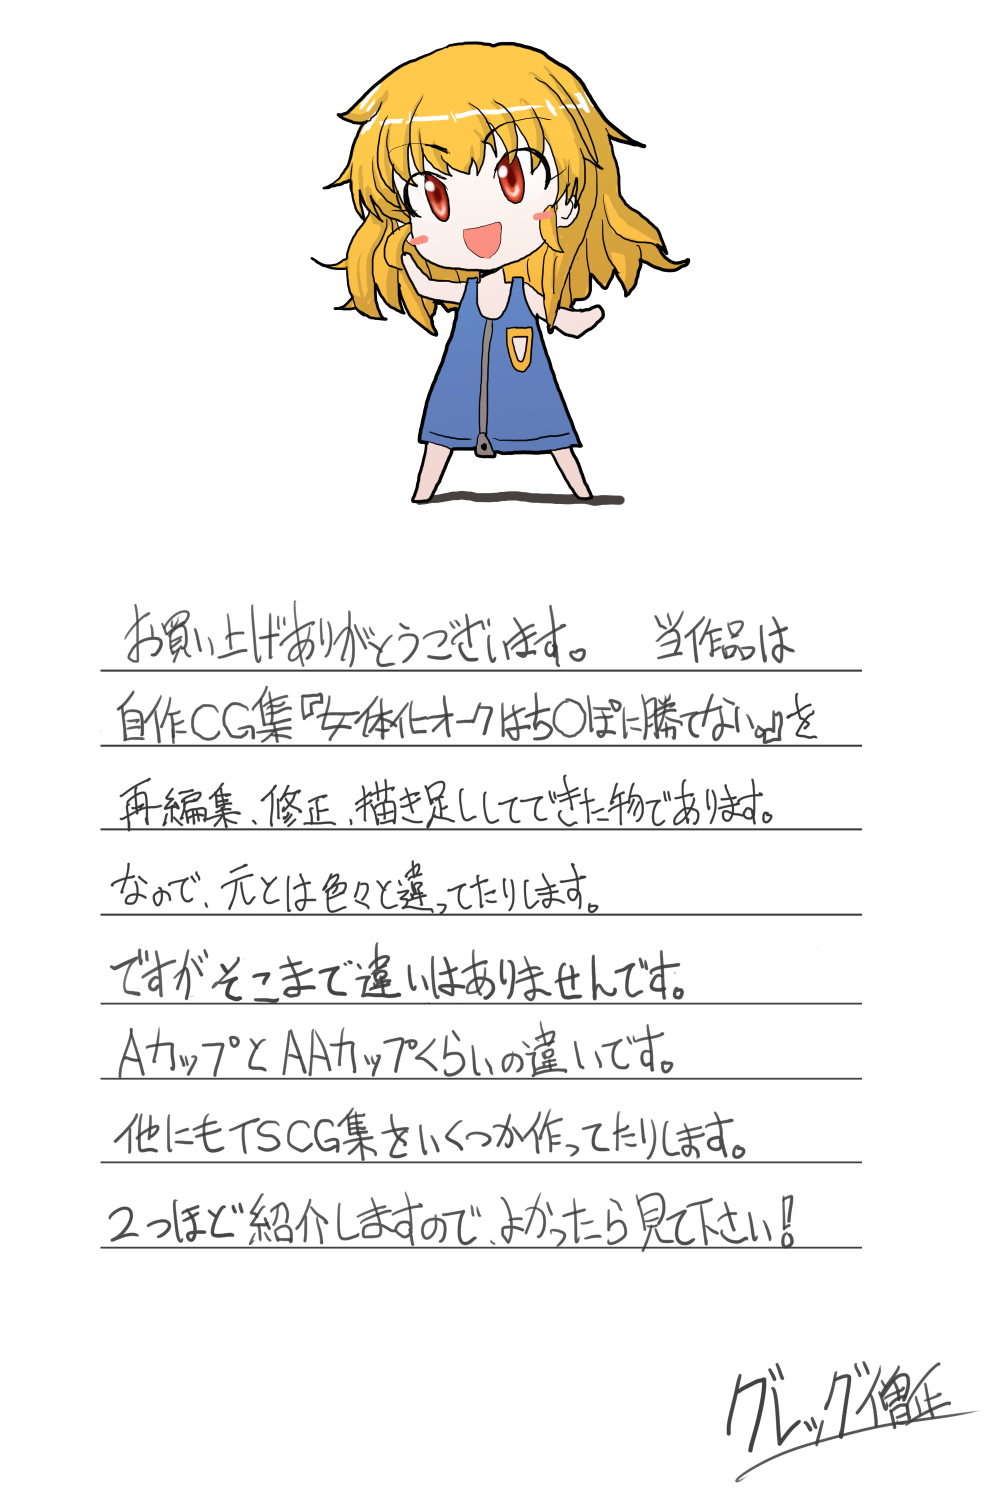 お買い上げありがとうございます。 当作品は
自作CG集『女体化オークはち○ぽに勝てない。』を
再編集、修正、描き足ししてできた物であります。
なので、元とは色々と違ってたりします。
ですがそこまで違いはありませんです。
AカップとAAカップくらいの違いです。
他にもTSCG集をいくつか作ってたりします。
2つほど紹介しますので、よかったら見て下さい!
グレッグ僧正